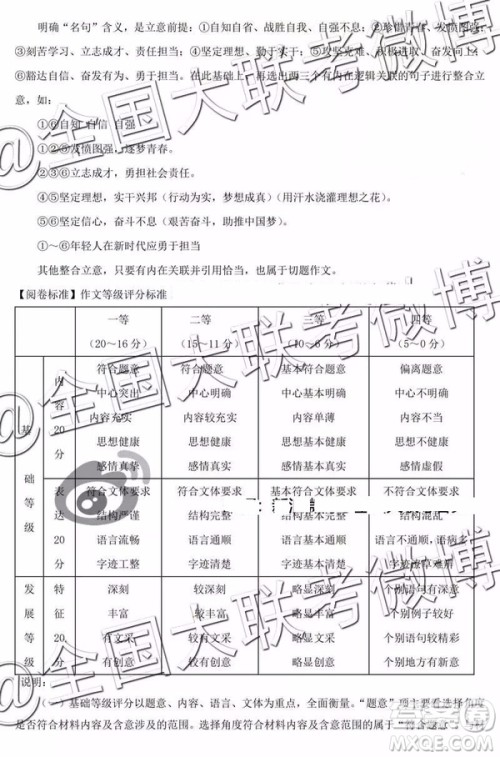 明确“名句”含义，是立意前提：①自知自省、战胜自我、自强不息；②珍惜青春、发愤图强；
③刻苦学习、立志成才、责任担当；④坚定理想、勤于实干；⑤攻坚克难、积极进取、奋发向上；
⑥豁达自信、奋发有为、勇于担当。在此基础上，再选出两三个有内在逻辑关联的句子进行整合立
意，如：
①⑥自知 自信 自强
①②⑤发愤图强，逐梦青春。
②③⑥立志成才，勇担社会责任。
④⑤坚定理想，实干兴邦（行动为实，梦想成真）（用汗水浇灌理想之花）。
④⑤坚定信心，奋斗不息（艰苦奋斗，助推中国梦）。
①～⑥年轻人在新时代应勇于担当
其他整合立意，只要有内在关联并引用恰当，也属于切题作文。
【阅卷标准】作文等级评分标准
一等 二等 三等 四等
（20～16 分） （15～11 分） （10～6 分） （5～0 分）
基础等级
内容 20 分
符合题意 符合题意 基本符合题意 偏离题意
中心突出 中心明确 中心基本明确 中心不明确
内容充实 内容较充实 内容单薄 内容不当
思想健康 思想健康 思想基本健康 思想不健康
感情真挚 感情真实 感情基本真实 感情虚假
表达 20 分
符合文体要求 符合文体要求 基本符合文体要求 不符合文体要求
结构严谨 结构完整 结构基本完整 结构混乱
语言流畅 语言通顺 语言基本通顺 语言不通顺，语病多
字迹工整 字迹清楚 字迹基本清楚 字迹潦草难辨
发展等级
特征 20 分
深刻 较深刻 略显深刻 个别语句有深意
丰富 较丰富 略显丰富 个别例子较好
有文采 较有文采 略显文采 个别语句较精彩
有创意 较有创意 略显创意 个别地方有新意
说明：
（一）基础等级评分以题意、内容、语言、文体为重点，全面衡量。“题意”项主要看选择角度
是否符合材料内容及含意涉及的范围。选择角度符合材料内容及含意范围的属于“符合题意”
@全国大联考微博
@全国大联考微博
@全国大联考微博